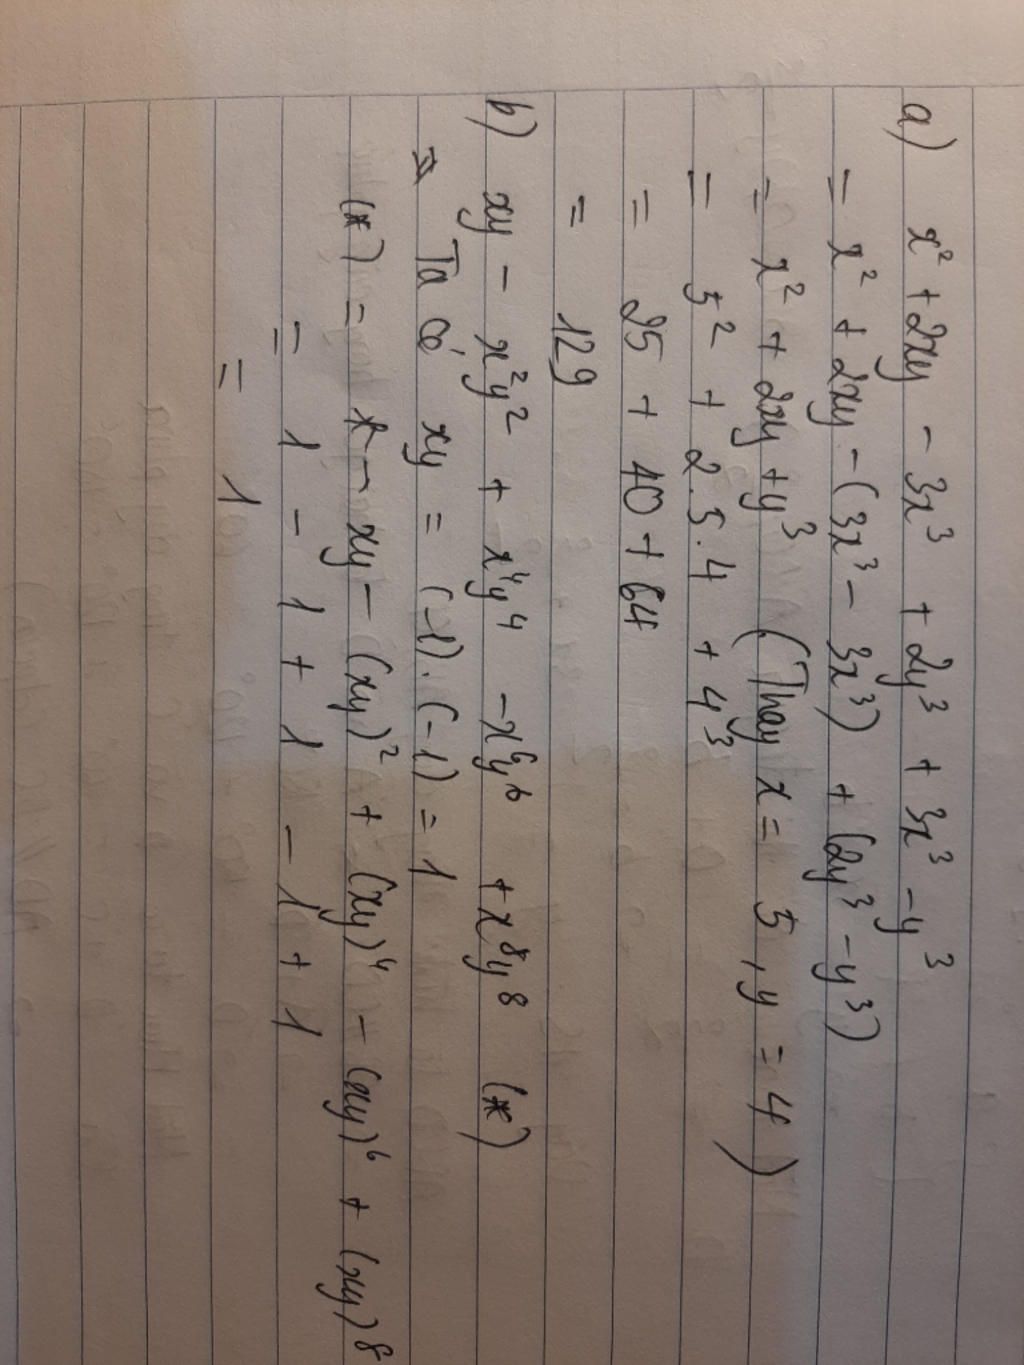 a) x² + 2xy - 3x³ + 2y³ + 3x³ - y³
= x² + 2xy - (3x³ - 3x³) + (2y³ - y³)
= x² + 2xy + y³ (Thay x = 5, y = 4)
= 5² + 2.5.4 + 4³
= 25 + 40 + 64
= 129
b) xy - x²y² + x⁴y⁴ - x⁶y⁶ + x⁸y⁸ (*)
Ta có xy = (-1).(-1) = 1
(*) = xy - (xy)² + (xy)⁴ - (xy)⁶ + (xy)⁸
= 1 - 1 + 1 - 1 + 1
= 1